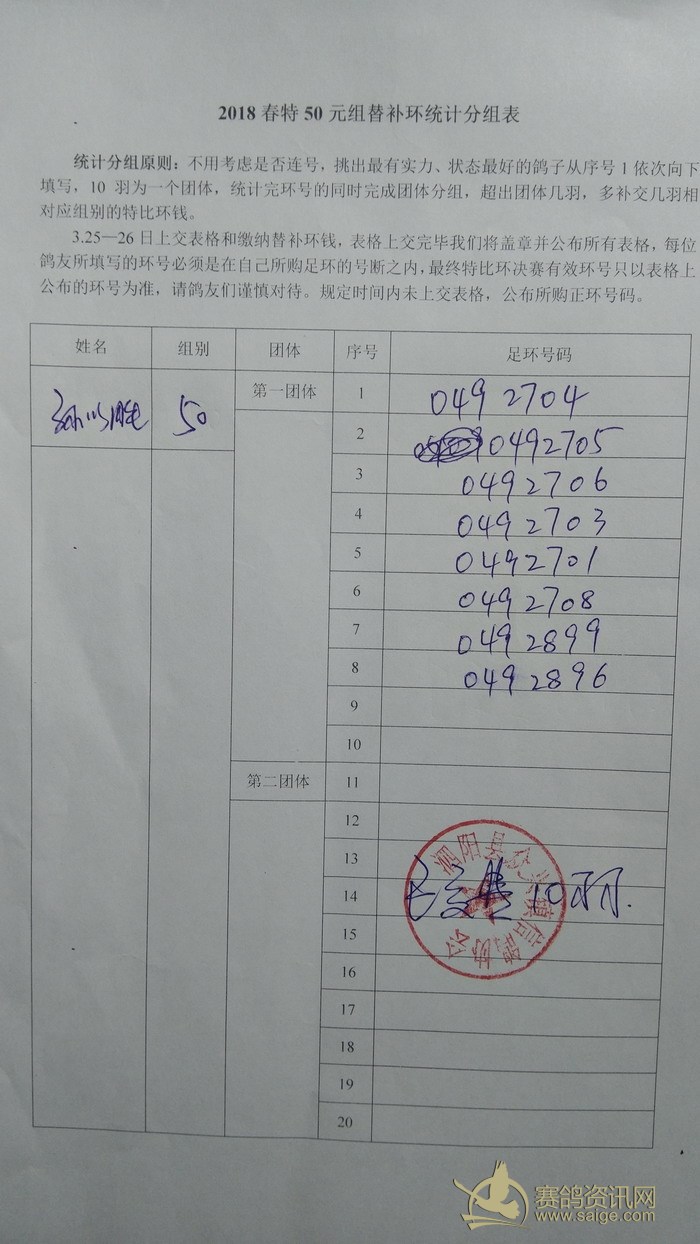 2018 春特 50 元组替补环统计分组表
统计分组原则：不用考虑是否连号，挑出最有实力、状态最好的鸽子从序号 1 依次向下
填写，10 羽为一个团体，统计完环号的同时完成团体分组，超出团体几羽，多补交几羽相
对应组别的特比环钱。
3.25—26 日上交表格和缴纳替补环钱，表格上交完毕我们将盖章并公布所有表格，每位
鸽友所填写的环号必须是在自己所购足环的号断之内，最终特比环决赛有效环号只以表格上
公布的环号为准，请鸽友们谨慎对待。规定时间内未上交表格，公布所购正环号码。
姓名 组别 团体 序号 足环号码
50 第一团体 1 0492704
2 0492705
3 0492706
4 0492703
5 0492701
6 0492708
7 0492899
8 0492896
9
10
第二团体 11
12
13
14 10羽.
15
16
17
18
19
20
泗阳县 镇信鸽协会
赛鸽资讯网
www.saige.com